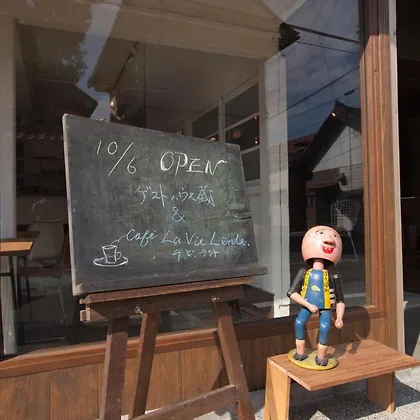 10/6 OPEN
ゲストハウス蔵
&
Café La Vie Lente.
ラ・ビ・ラント